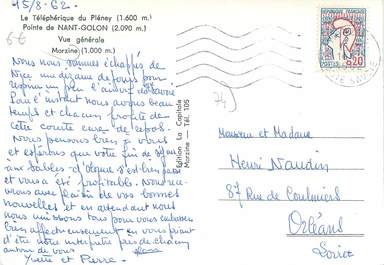 15/8-62-
Le Téléphérique du Pléney (1.600 m.)
Pointe de NANT-GOLON (2.090 m.)
Vue générale
Morzine (1.000 m.)
6€
Nous nous sommes échappés de
Nice une dizaine de jours pour
respirer un peu l'air
Pour l'instant nous avons beau
temps et chacun profite de
cette courte cure de repos.
Nous pensons bien à vous
et espérons que votre fin de séjour
aux Sables d'Olonne s'est bien passée
et vous a été profitable. Nous
avons plaisir de vos bonnes
nouvelles et en attendant nous
nous unissons tous pour vous embrasser
bien affectueusement en vous priant
d'être notre interprète près de chacun
autour de vous
Yvette et Pierre.
Edition La Capitale
Morzine — Tél. 105
74)
0,20
POSTES
Monsieur et Madame
Henri Naudin
87 Rue de Coulmiers
Orléans
Loiret